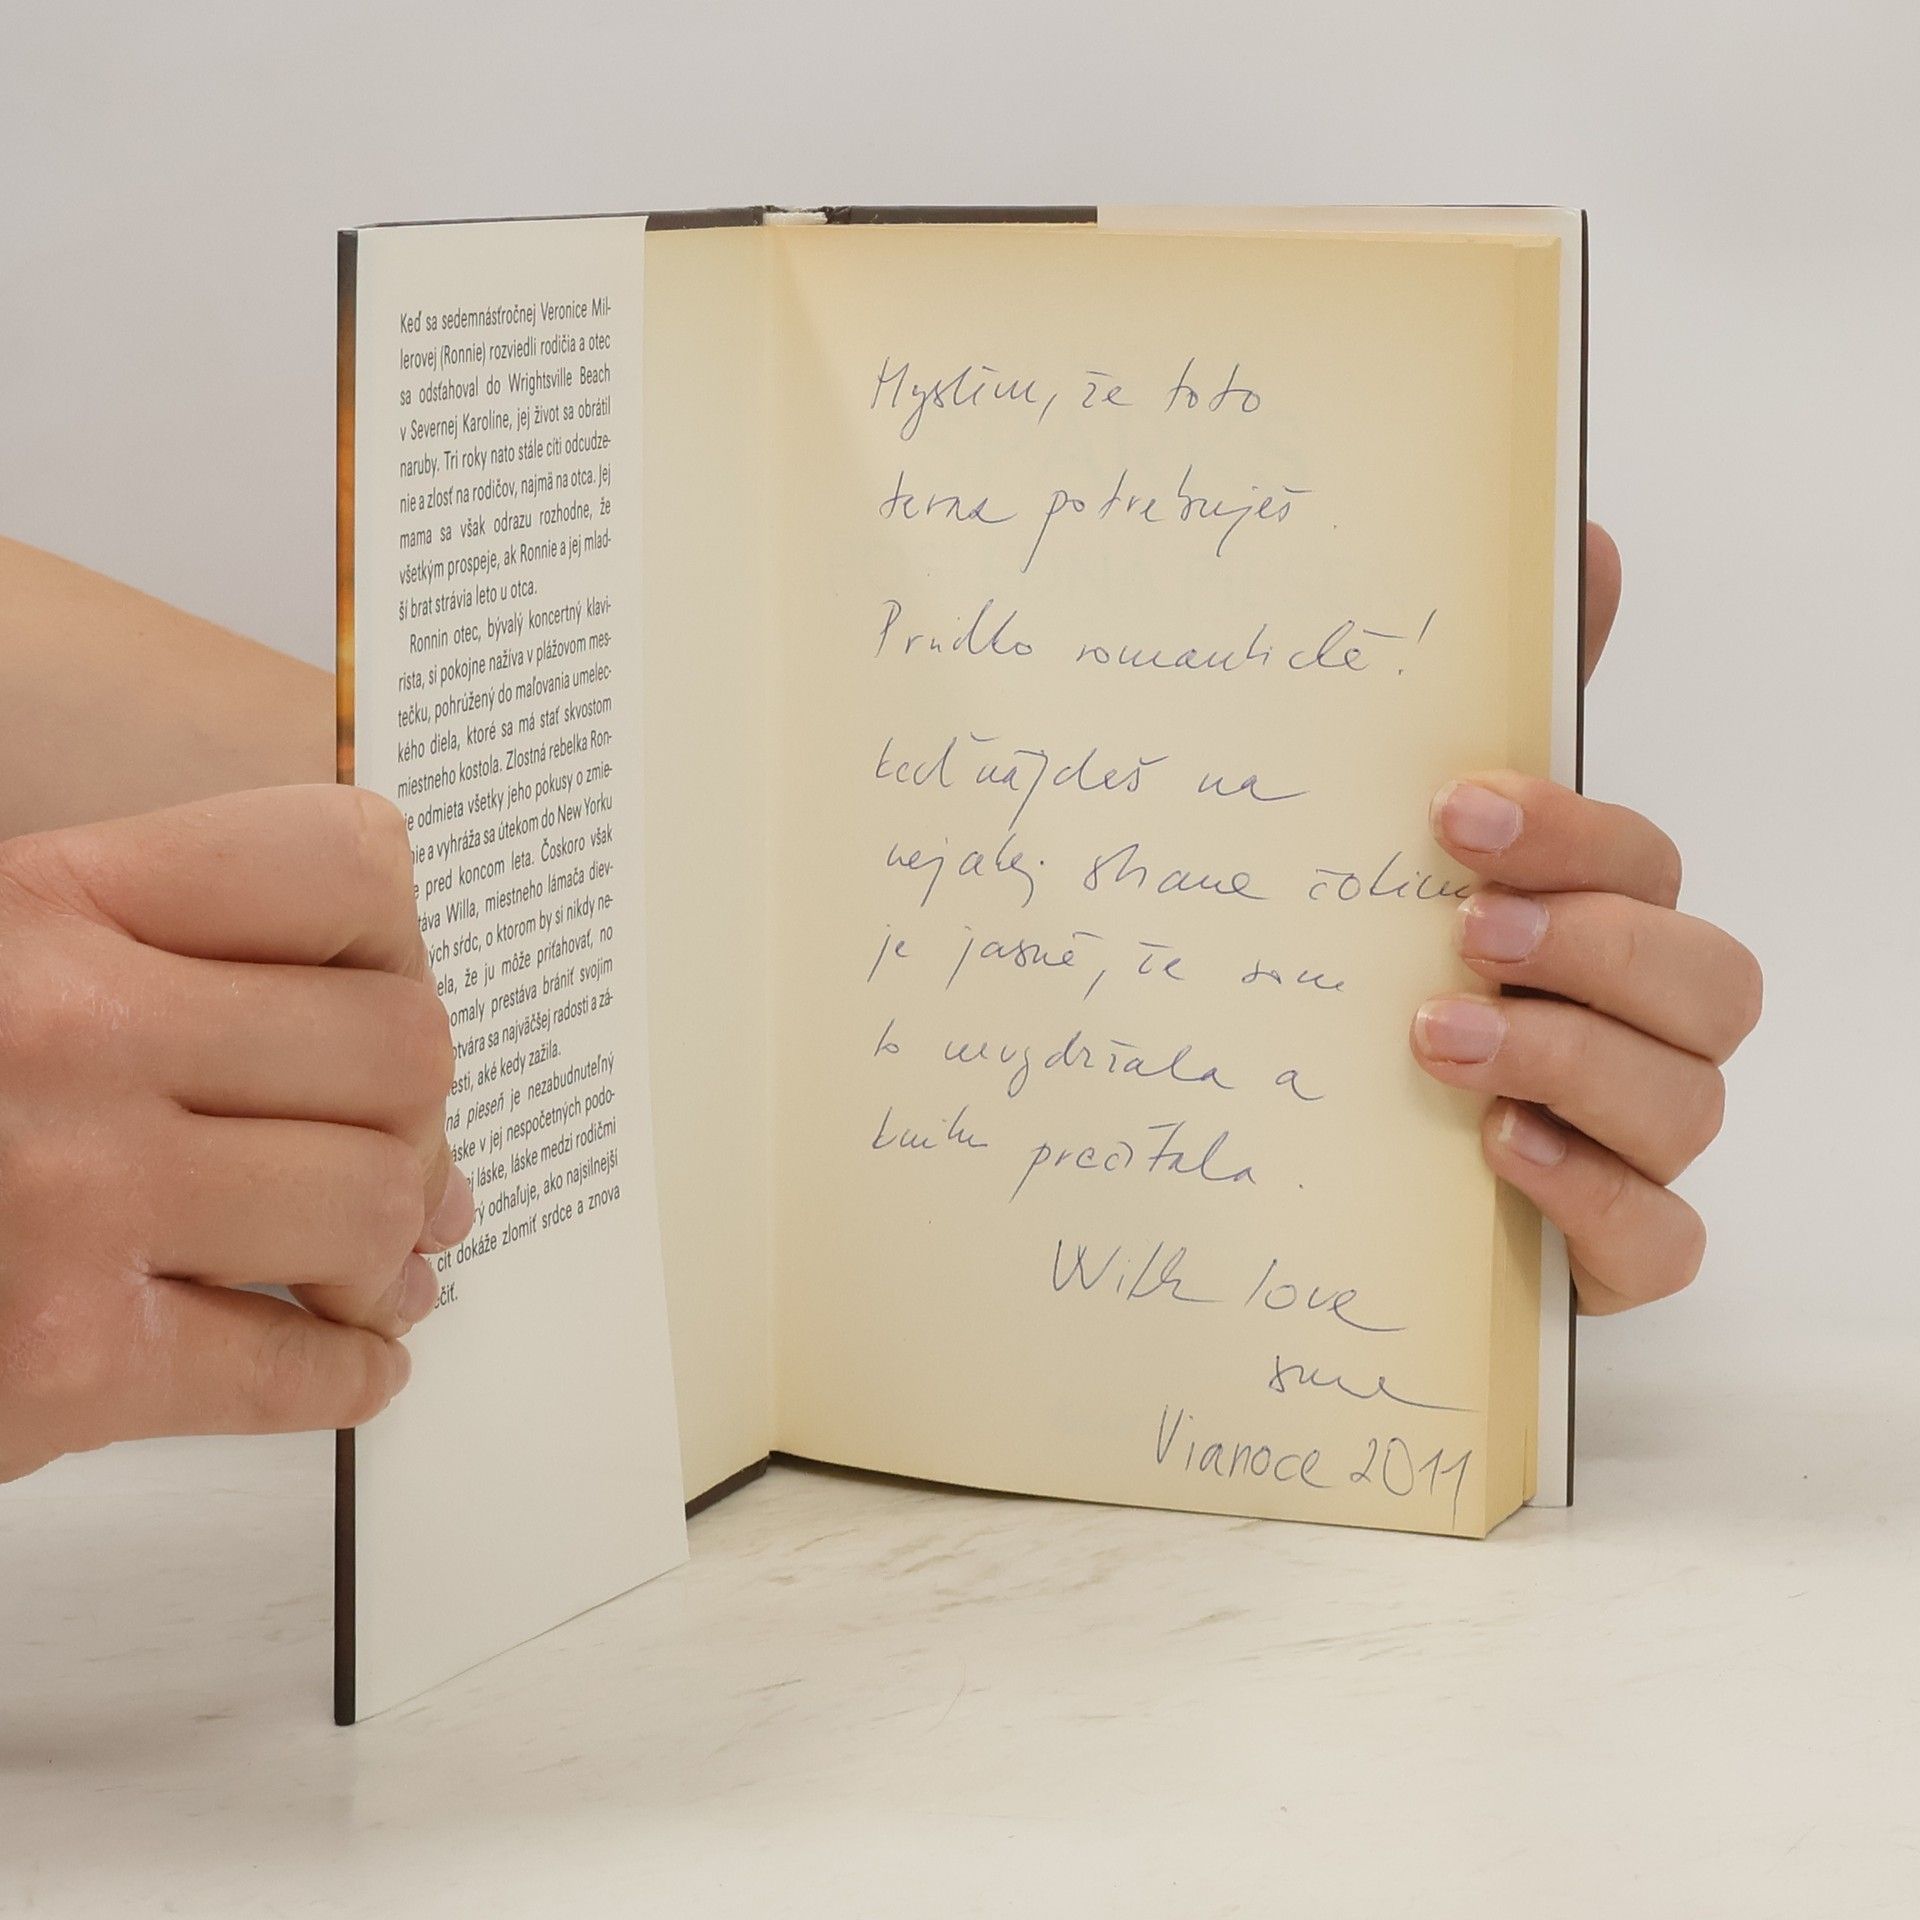 Keď sa sedemnásťročnej Veronice Mil-
lerovej (Ronnie) rozviedli rodičia a otec
sa odsťahoval do Wrightsville Beach
v Severnej Karolíne, jej život sa obrátil
naruby. Tri roky nato stále cíti odcudze-
nie a zlosť na rodičov, najmä na otca. Jej
mama sa však odrazu rozhodne, že
všetkým prospeje, ak Ronnie a jej mlad-
ší brat strávia leto u otca.
Ronnin otec, bývalý koncertný klavi-
rista, si pokojne nažíva v plážovom mes-
tečku, pohrúžený do maľovania umelec-
kého diela, ktoré sa má stať skvostom
miestneho kostola. Zlostná rebelka Ron-
ie odmieta všetky jeho pokusy o zmie-
nie a vyhráža sa útekom do New Yorku
e pred koncom leta. Čoskoro však
táva Willa, miestneho lámača diev-
ých sŕdc, o ktorom by si nikdy ne-
ela, že ju môže priťahovať, no
omaly prestáva brániť svojim
otvára sa najväčšej radosti a zá-
esti, aké kedy zažila.
ná pieseň je nezabudnuteľný
láske v jej nespočetných podo-
ej láske, láske medzi rodičmi
rý odhaľuje, ako najsilnejší
cit dokáže zlomiť srdce a znova
ečiť.
Myslím, že toto
teraz potrebuješ.
Prudko romantické!
keď nájdeš na
nejakej strane
je jasné, že som
to nevydržala a
knihu prečítala.
With love
Vianoce 2011